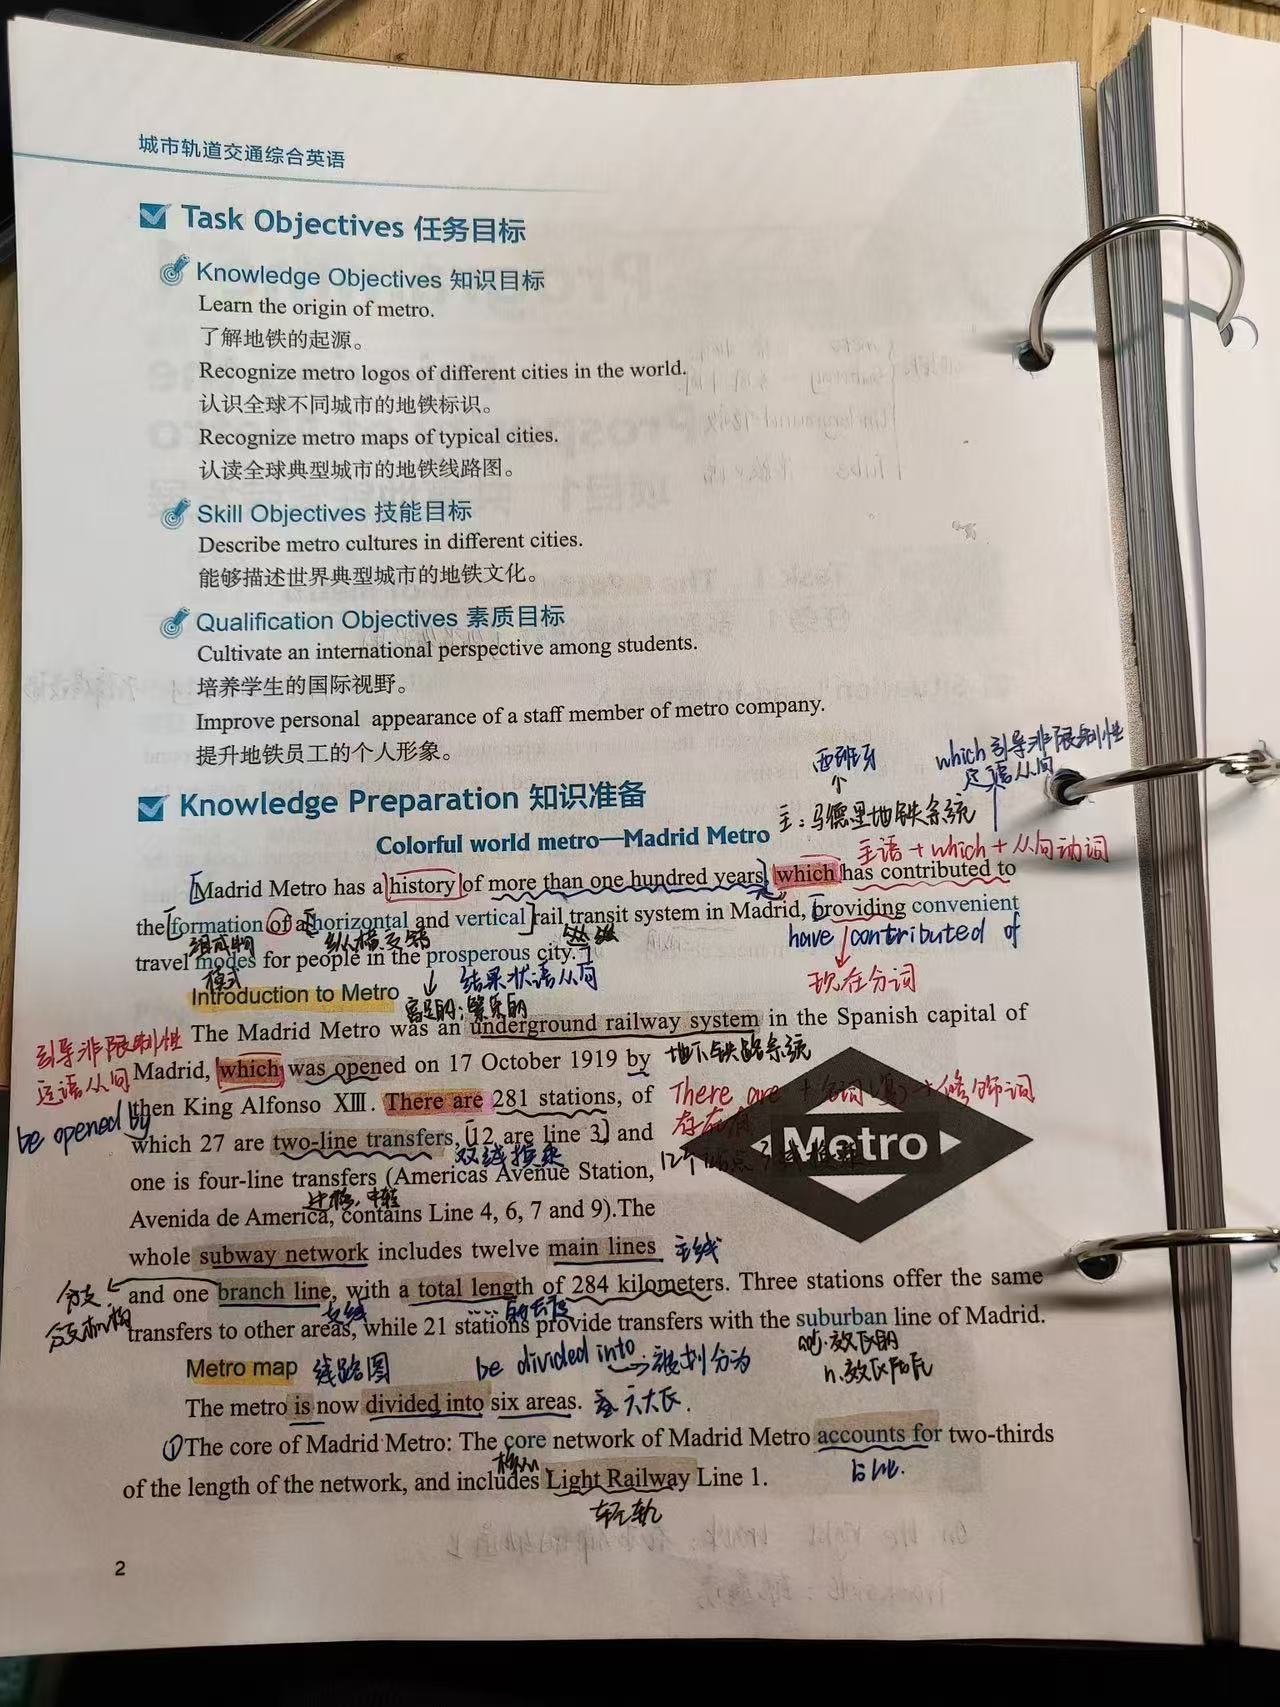 城市轨道交通综合英语
Task Objectives 任务目标
Knowledge Objectives 知识目标
Learn the origin of metro.
了解地铁的起源。
Recognize metro logos of different cities in the world.
认识全球不同城市的地铁标识。
Recognize metro maps of typical cities.
认读全球典型城市的地铁线路图。
Skill Objectives 技能目标
Describe metro cultures in different cities.
能够描述世界典型城市的地铁文化。
Qualification Objectives 素质目标
Cultivate an international perspective among students.
培养学生的国际视野。
Improve personal appearance of a staff member of metro company.
提升地铁员工的个人形象。
西班牙
which引导非限制性
定语从句
Knowledge Preparation 知识准备
主:马德里地铁系统
Colorful world metro—Madrid Metro
主语+which+从句动词
Madrid Metro has a history of more than one hundred years, which has contributed to
the formation of a horizontal and vertical rail transit system in Madrid, providing convenient
组成物 纵横交错
have contributed of
travel modes for people in the prosperous city.
模式
结果状语从句
现在分词
Introduction to Metro
富足的;繁荣的
The Madrid Metro was an underground railway system in the Spanish capital of
引导非限制性
定语从句
Madrid, which was opened on 17 October 1919 by
地下铁路系统
be opened by
then King Alfonso XIII. There are 281 stations, of
There are
修饰词
which 27 are two-line transfers, [12 are line 3] and
双线换乘
one is four-line transfers (Americas Avenue Station,
Avenida de America, contains Line 4, 6, 7 and 9).The
Metro
whole subway network includes twelve main lines
主线
分支
分支机构
and one branch line, with a total length of 284 kilometers. Three stations offer the same
支线
的长度
transfers to other areas, while 21 stations provide transfers with the suburban line of Madrid.
Metro map
线路图
be divided into 被划分为
adj.
n.
The metro is now divided into six areas.
六大区.
①The core of Madrid Metro: The core network of Madrid Metro accounts for two-thirds
核心
占比.
of the length of the network, and includes Light Railway Line 1.
轻轨
2